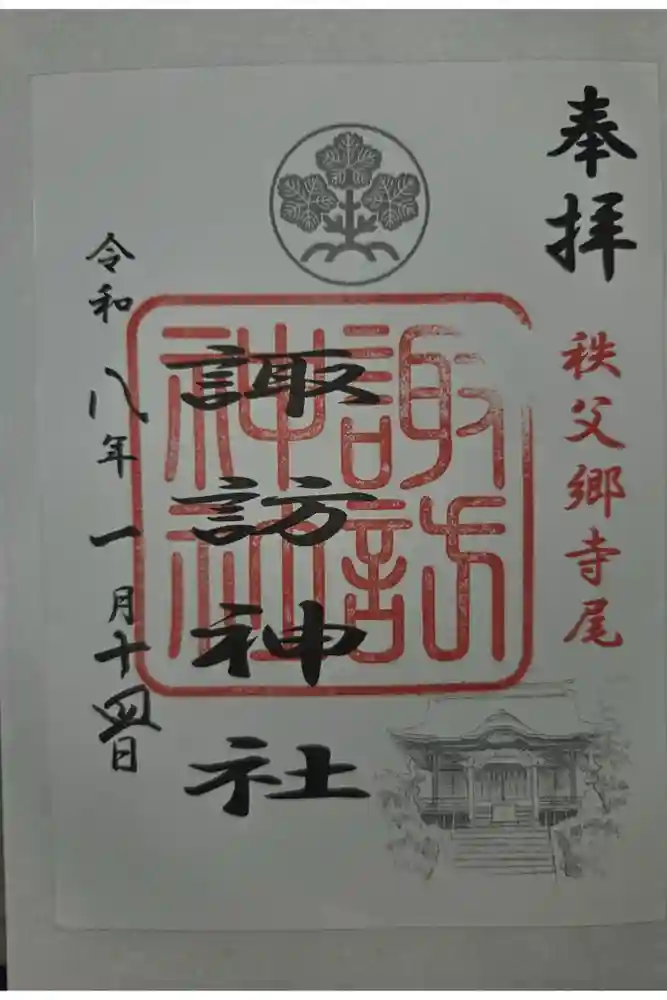 奉拝
秩父郷寺尾
諏訪神社
諏訪
神社
令和八年一月十四日